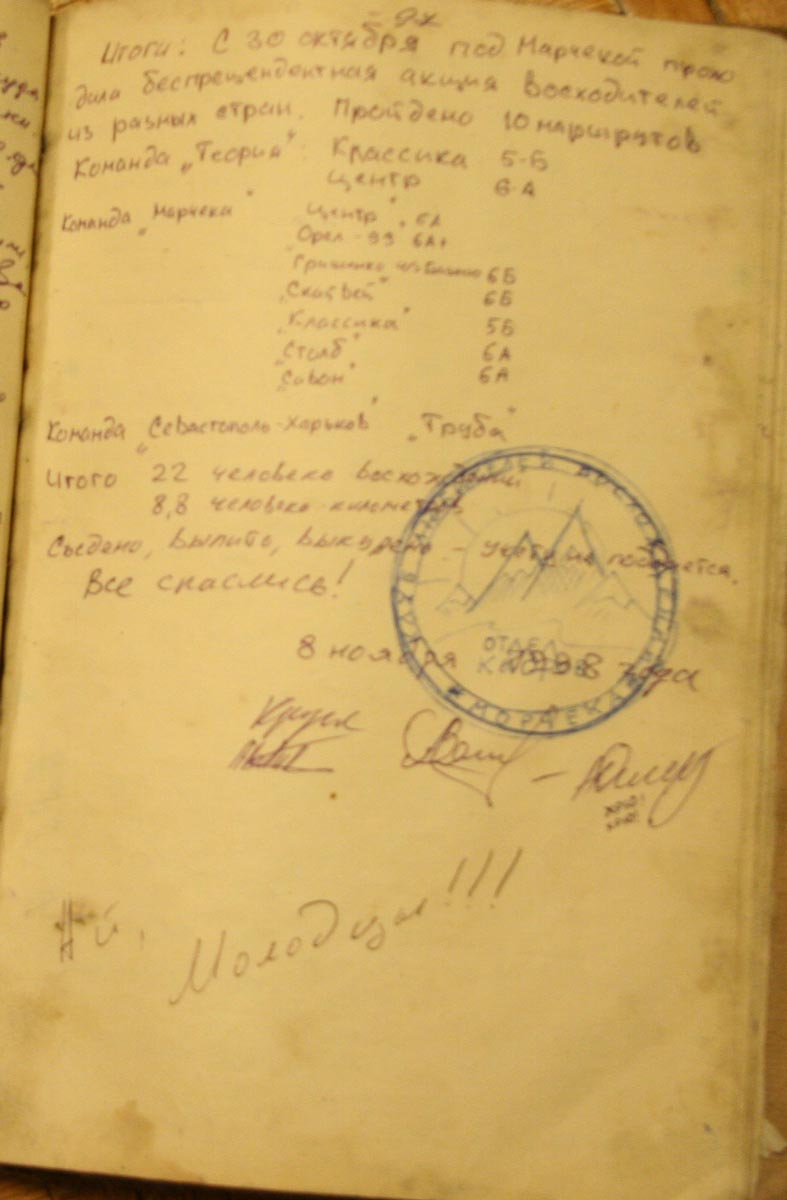 Итоги: С 30 октября под Марчекой прохо
дила беспрецендентная акция восходителей
из разных стран. Пройдено 10 маршрутов
Команда „Теория": Классика 5-Б
Центр 6-А
Команда „Марчека" „Центр", 6А
„Орел-99 6А+
6Б
„Скайвей" 6Б
„Классика" 5Б
„Столб" 6А
„Савон" 6А
Команда „Севастополь-Харьков" „Труба"
Итого 22 человеко восхождении
8,8 человеко-километров
Съедено, выпито, выкурено – учету неподается.
Все спаслись!
8 ноября 1998 года
ОТДЕЛ
МОРДЕКА
Ай, Молодцы!!!